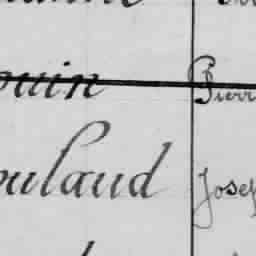 ouin Pierr
oulaud Josep